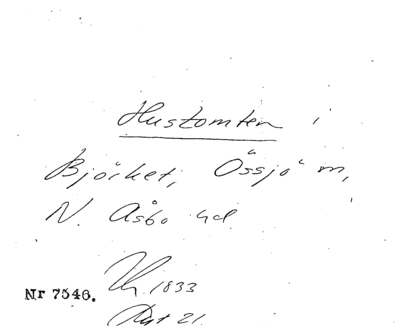 Hustomten i
Björket, Össjö m,
N. Åsbo hd.
1833
Nr 7546.
21.